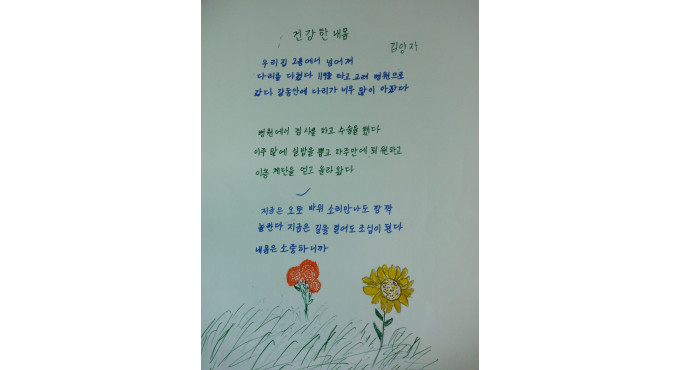 건강한 내몸
김양자
우리집 2층에서 넘어져
다리를 다쳤다 119를 타고 고려 병원으로
갔다 갈동안에 다리가 너무 많이 아팠다
병원에서 검사를 하고 수술을 했다
이주 만에 실밥을 뽑고 타주만에 퇴원하고
이층 계단을 업고 올라 왔다
지금은 오토바위 소리만 나도 깜짝
놀란다 지금은 길을 걸어도 조심이 된다
내몸은 소중하니까